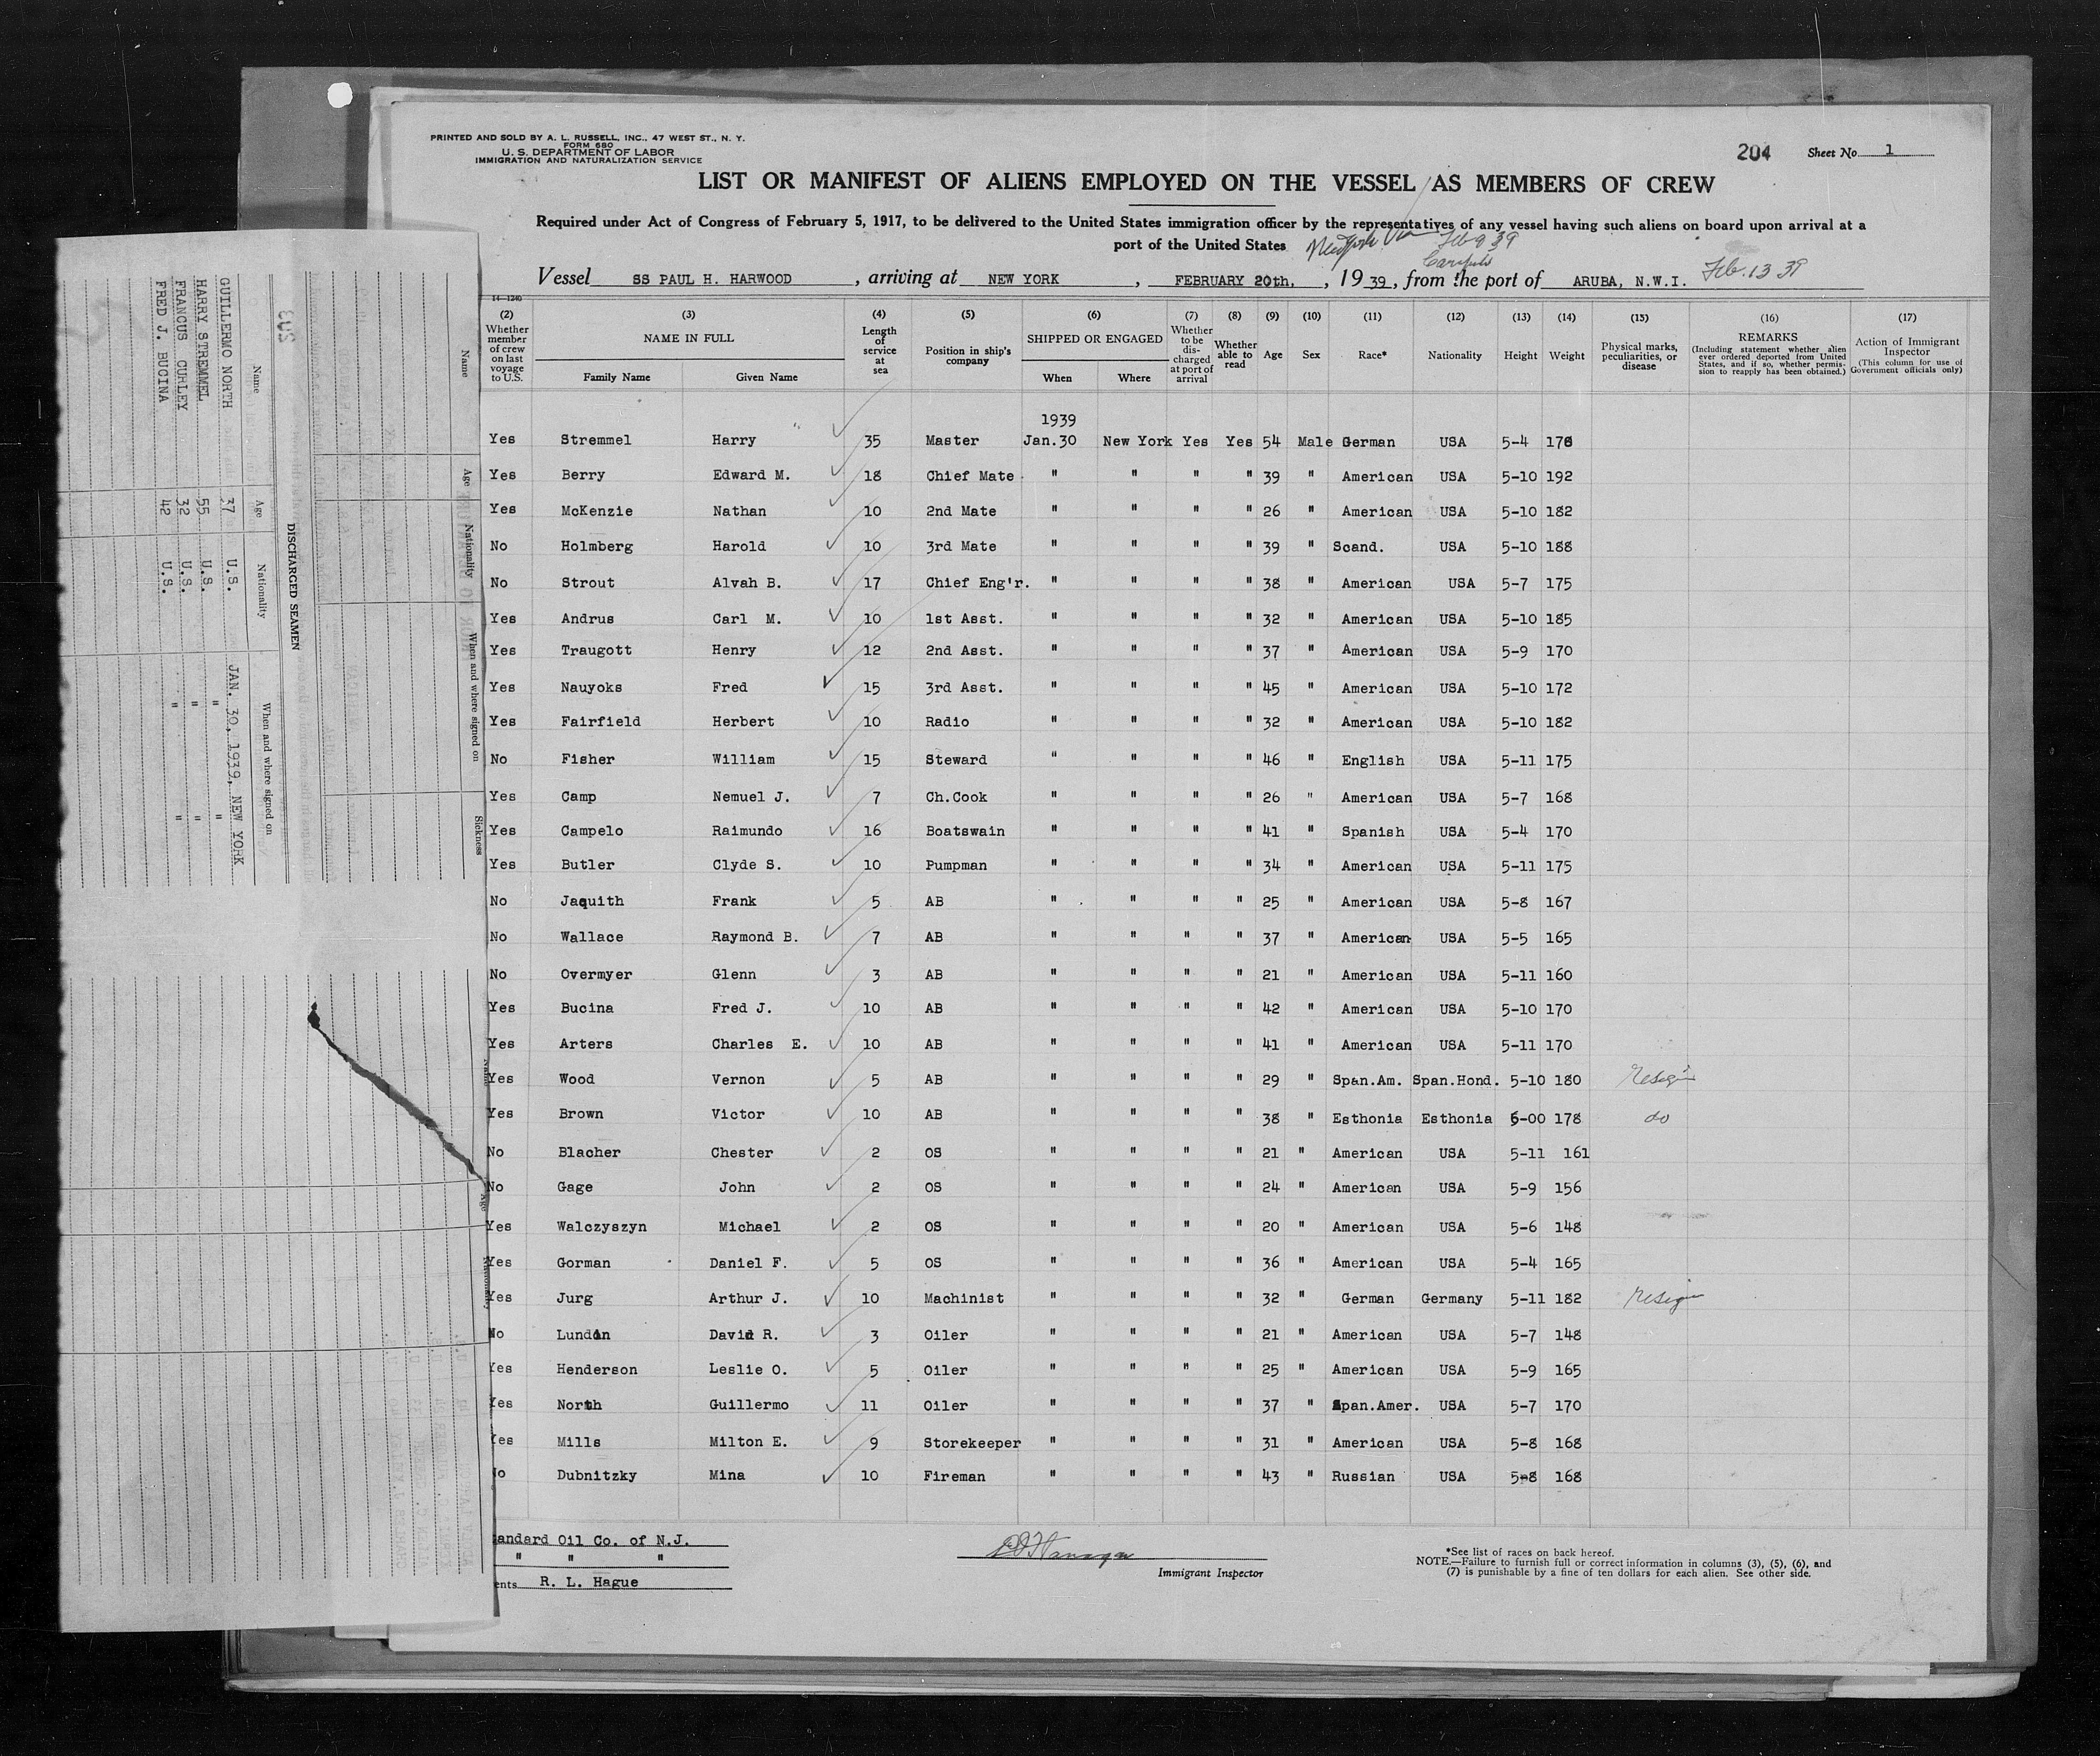 PRINTED AND SOLD BY A. L. RUSSELL, INC., 47 WEST ST., N. Y.
FORM 680
U. S. DEPARTMENT OF LABOR
IMMIGRATION AND NATURALIZATION SERVICE
204 Sheet No. 1
LIST OR MANIFEST OF ALIENS EMPLOYED ON THE VESSEL AS MEMBERS OF CREW
Required under Act of Congress of February 5, 1917, to be delivered to the United States immigration officer by the representatives of any vessel having such aliens on board upon arrival at a
port of the United States New York Via Feb 9 39
Vessel SS PAUL H. HARWOOD, arriving at NEW YORK, FEBRUARY 20th, 1939, from the port of ARUBA, N.W.I. Feb. 13 39
14—1240
(2) (3) (4) (5) (6) (7) (8) (9) (10) (11) (12) (13) (14) (15) (16) (17)
Whether member of crew on last voyage to U.S. NAME IN FULL Family Name Given Name Length of service at sea Position in ship's company SHIPPED OR ENGAGED When Where Whether to be discharged at port of arrival Whether able to read Age Sex Race* Nationality Height Weight Physical marks, peculiarities, or disease REMARKS (Including statement whether alien ever ordered deported from United States, and if so, whether permission to reapply has been obtained.) Action of Immigrant Inspector (This column for use of Government officials only)
1939
Yes Stremmel Harry 35 Master Jan.30 New York Yes Yes 54 Male German USA 5-4 170
Yes Berry Edward M. 18 Chief Mate " " " " 39 " American USA 5-10 192
Yes McKenzie Nathan 10 2nd Mate " " " " 26 " American USA 5-10 182
No Holmberg Harold 10 3rd Mate " " " " 39 " Scand. USA 5-10 188
No Strout Alvah B. 17 Chief Eng'r. " " " " 38 " American USA 5-7 175
Yes Andrus Carl M. 10 1st Asst. " " " " 32 " American USA 5-10 185
Yes Traugott Henry 12 2nd Asst. " " " " 37 " American USA 5-9 170
Yes Nauyoks Fred 15 3rd Asst. " " " " 45 " American USA 5-10 172
Yes Fairfield Herbert 10 Radio " " " " 32 " American USA 5-10 182
No Fisher William 15 Steward " " " " 46 " English USA 5-11 175
Yes Camp Nemuel J. 7 Ch.Cook " " " " 26 " American USA 5-7 168
Yes Campelo Raimundo 16 Boatswain " " " " 41 " Spanish USA 5-4 170
Yes Butler Clyde S. 10 Pumpman " " " " 34 " American USA 5-11 175
No Jaquith Frank 5 AB " " " " 25 " American USA 5-8 167
No Wallace Raymond B. 7 AB " " " " 37 " American USA 5-5 165
No Overmyer Glenn 3 AB " " " " 21 " American USA 5-11 160
Yes Bucina Fred J. 10 AB " " " " 42 " American USA 5-10 170
Yes Arters Charles E. 10 AB " " " " 41 " American USA 5-11 170
Yes Wood Vernon 5 AB " " " " 29 " Span.Am. Span.Hond. 5-10 180 resign
Yes Brown Victor 10 AB " " " " 38 " Esthonia Esthonia 6-00 178 do
No Blacher Chester 2 OS " " " " 21 " American USA 5-11 161
No Gage John 2 OS " " " " 24 " American USA 5-9 156
Yes Walczyszyn Michael 2 OS " " " " 20 " American USA 5-6 148
Yes Gorman Daniel F. 5 OS " " " " 36 " American USA 5-4 165
Yes Jurg Arthur J. 10 Machinist " " " " 32 " German Germany 5-11 182 resign
No Lundin David R. 3 Oiler " " " " 21 " American USA 5-7 148
Yes Henderson Leslie O. 5 Oiler " " " " 25 " American USA 5-9 165
Yes North Guillermo 11 Oiler " " " " 37 " Span.Amer. USA 5-7 170
Yes Mills Milton E. 9 Storekeeper " " " " 31 " American USA 5-8 168
No Dubnitzky Mina 10 Fireman " " " " 43 " Russian USA 5-8 168
andard Oil Co. of N.J.
" " "
ents R. L. Hague
Immigrant Inspector
*See list of races on back hereof.
NOTE.—Failure to furnish full or correct information in columns (3), (5), (6), and
(7) is punishable by a fine of ten dollars for each alien. See other side.
Name Age Nationality When and where signed on Sickness
203
DISCHARGED SEAMEN
Name Age Nationality When and where signed on
GUILLERMO NORTH 37 U.S. JAN. 30, 1939, NEW YORK
HARRY STREMMEL 55 U.S. " "
FRANCUS CURLEY 32 U.S. " "
FRED J. BUCINA 42 U.S. " "